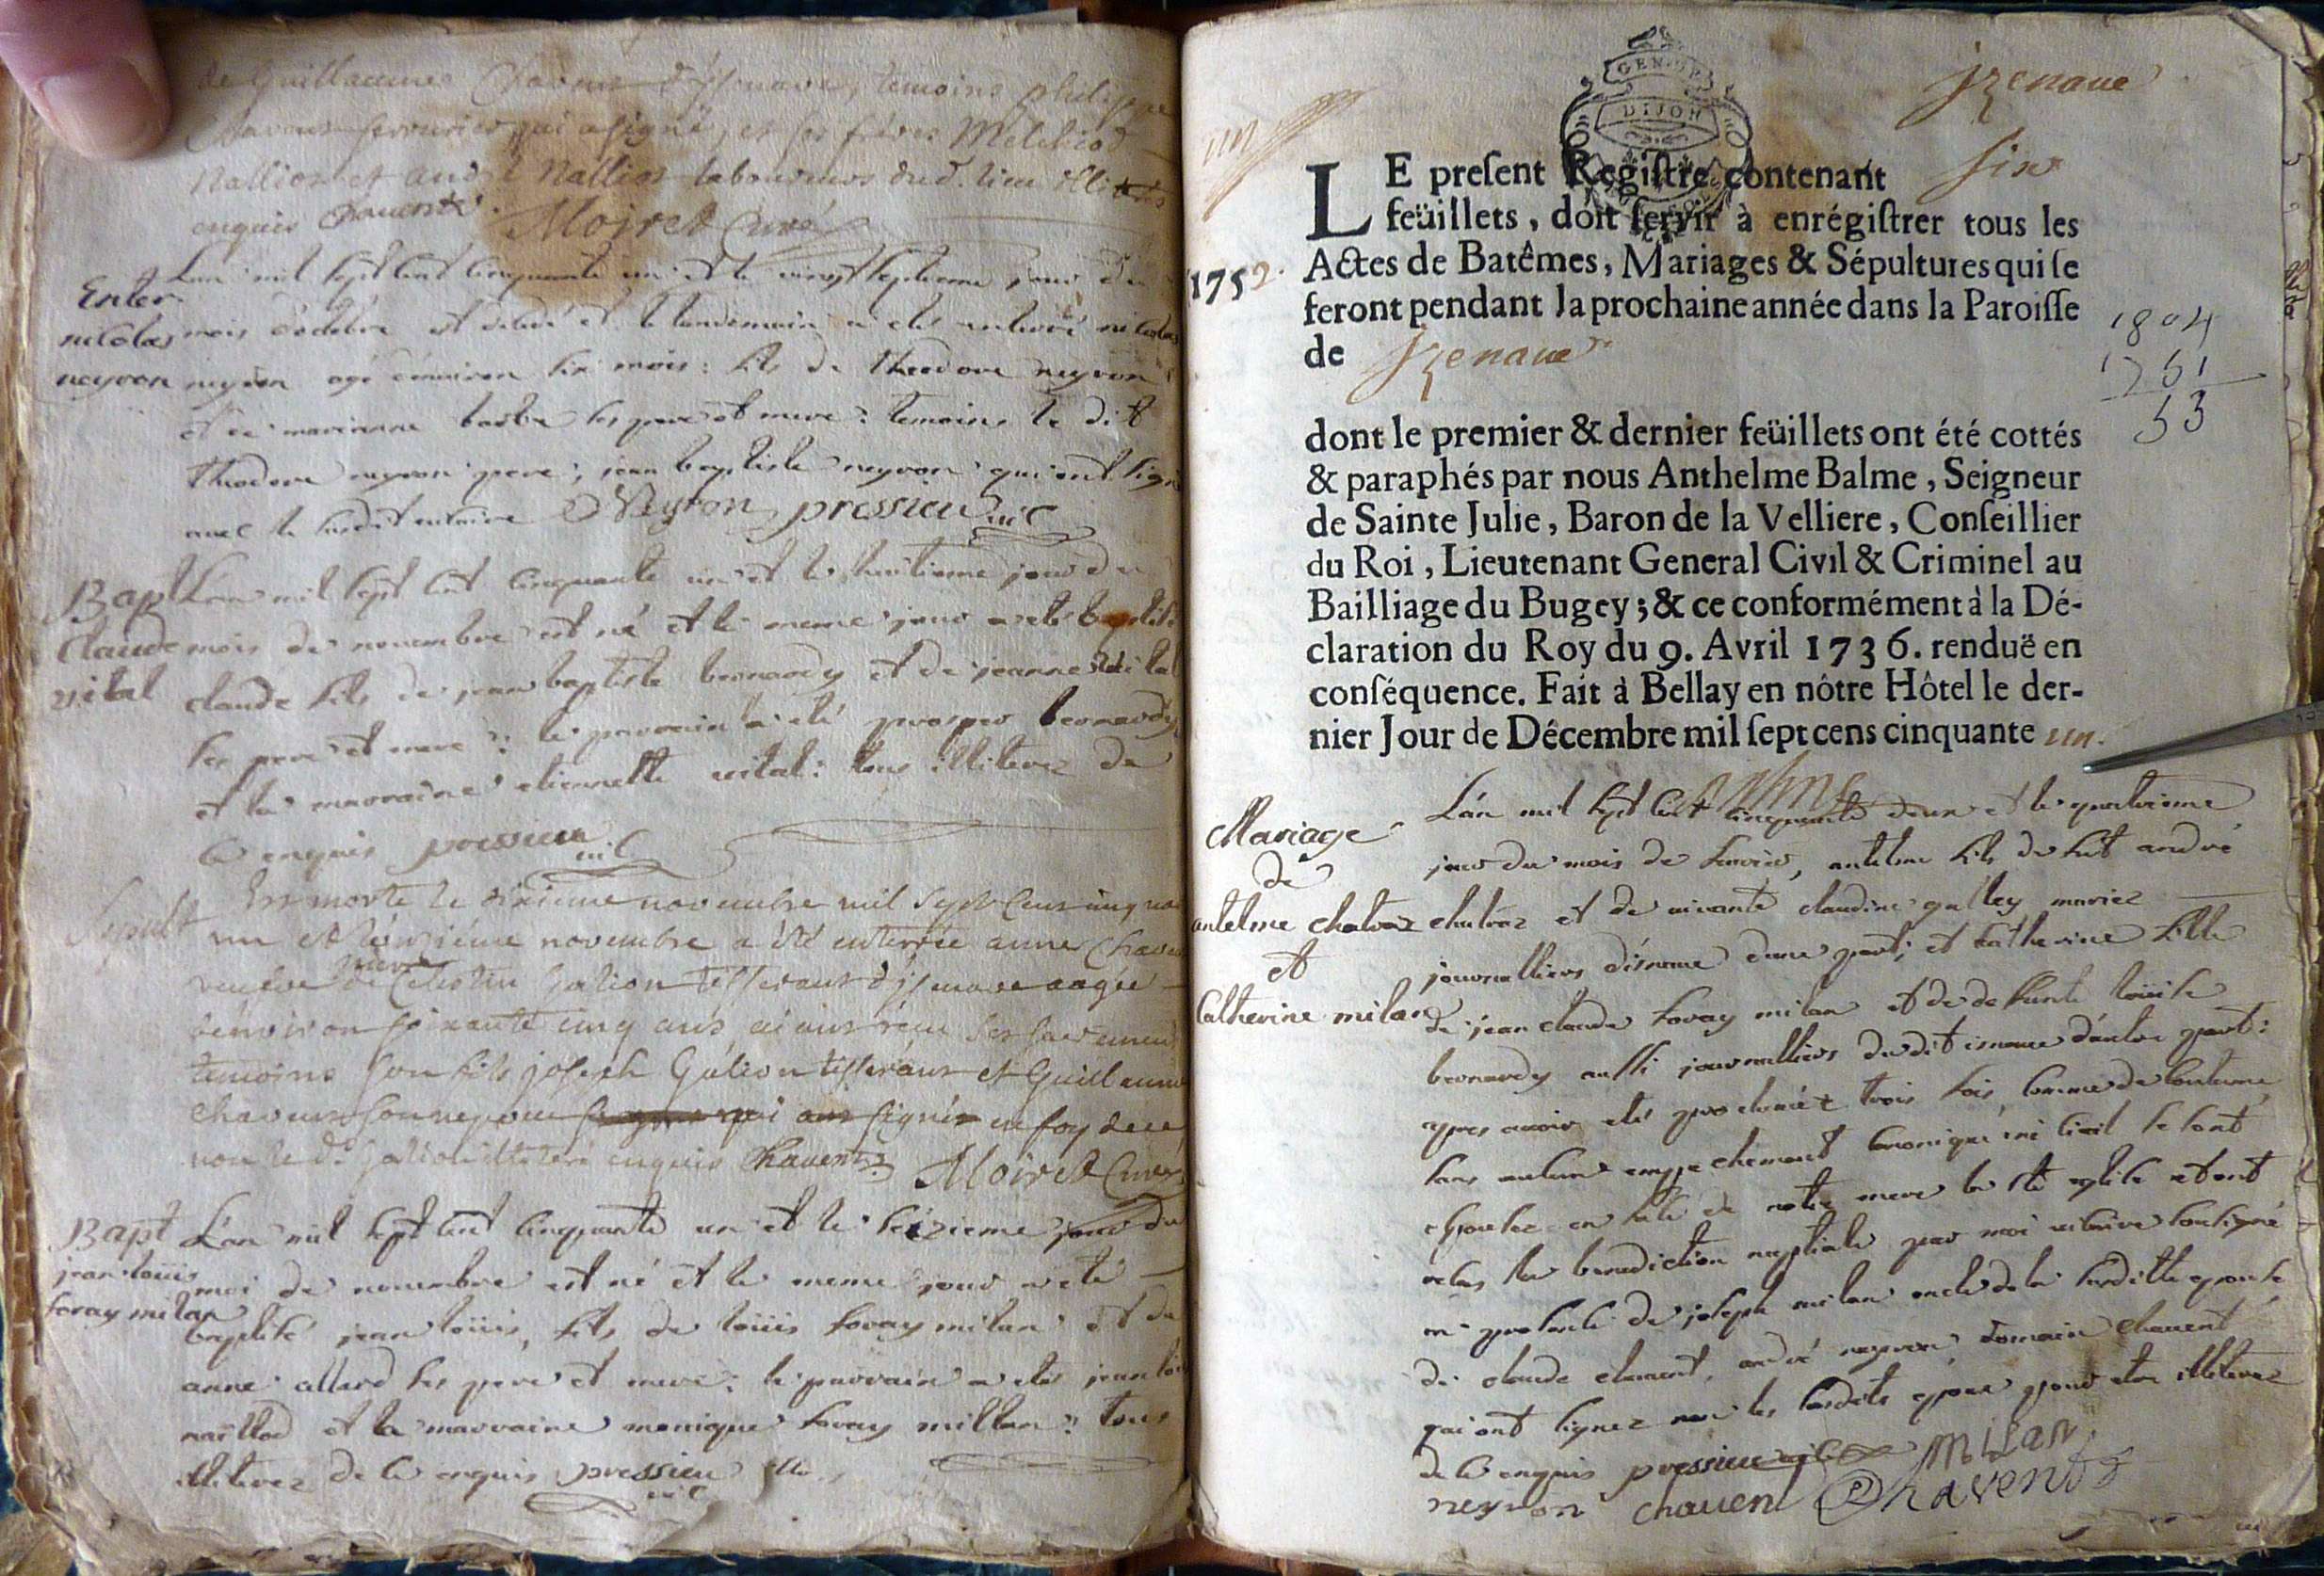 de Guillaume Chavent d'Isenave, temoins philippe
Chavent serrurier qui a signé, et ses frères Melchiod
Nallion et andré Nallion laboureurs dud. lieu illiterés
enquis Chavent. Moiret Curé
L'an mil sept cent cinquante un et le vingt septieme jour du
Enter.
nicolas
neyron
mois d'octobre est decedé et le landemain a eté enterré nicolas
neyron agé d'environ six mois: fils de theodore neyron
et de marianne barbe ses pere et mere: temoins le dit
theodore neyron pere, jean baptiste neyron qui ont signé
avec le susdit vicaire Neyron pressieu vic
Bapt
Claude
vital
L'an mil sept cent cinquante un et le huitieme jour du
mois de novembre est né et le meme jour a eté baptisé
claude fils de jean baptiste bernardy et de jeanne vital
ses pere et mere: le parrain a eté prosper bernardy
et la marraine etiennette vital: tous illiterez de
ce enquis pressieu vic
Sepult
Est morte le dixieme novembre mil sept cens cinquante
un et l'onziéme novembre a été enterrée anne Chavent
mere
veuve de Celestin Galion tisserant d'isenave aagée
d'environ soixante cinq ans, aiant reçu ses sacrements
temoins son fils joseph Galion tisserant et Guillaume
chavent son nepveu qui ont signés en foy de ce
non le d. Galion illiteré enquis Chavent Moiret Curé
Bapt
jean loüis
foray milan
L'an mil sept cent cinquante un et le seizieme jour du
moi de novembre est né et le meme jour a eté
baptisé jean loüis, fils de loüis foray milan et de
anne allard ses pere et mere: le parrain a eté jean
naillod et la marraine monique foray millan: tous
illiterez de ce enquis pressieu vic
Izenave
GEN. DE
DIJON
un
LE preſent Regiſtre contenant six
feüillets, doit ſervir à enrégiſtrer tous les
1752.
Actes de Batêmes, Mariages & Sépultures qui ſe
feront pendant la prochaine année dans la Paroiſſe
de Izenave
1804
1751
53
dont le premier & dernier feüillets ont été cottés
& paraphés par nous Anthelme Balme, Seigneur
de Sainte Julie, Baron de la Velliere, Conſeillier
du Roi, Lieutenant General Civil & Criminel au
Bailliage du Bugey; & ce conformément à la Dé-
claration du Roy du 9. Avril 1736. renduë en
conſéquence. Fait à Bellay en nôtre Hôtel le der-
nier Jour de Décembre mil ſept cens cinquante un.
Mariage
de
antelme chatraz
et
Catherine milan
L'an mil sept cent cinquante deux et le quatrieme
jour du mois de fevrier, antelme fils de fut andré
chatraz et de vivante claudine galley mariez
journalliers d'isenave d'une part; et katherine fille
de jean claude foray milan et de defunte loüise
bernardy aussi journalliers dudit isenave d'autre part:
apres avoir eté proclaméz trois fois comme de coutume
sans aucun empechement canonique ni civil se sont
epousez en face de notre mere la ste eglise et ont
reçus la benediction nuptiale par moi vicaire soussigné
en presence de joseph milan oncle de la susditte epouse
de claude clement, andré neyron, romain chavent
qui ont signez non les susdits epoux pour etre illiterez
de ce enquis pressieu vic Milan
neyron chavent Chavent